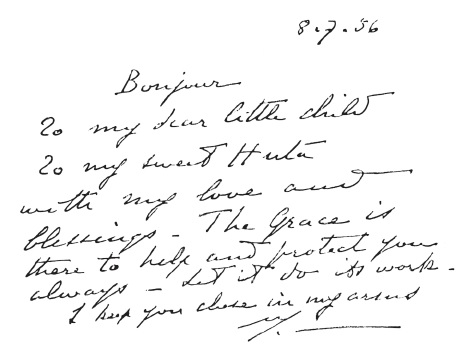 8.7.56
Bonjour
To my dear little child
To my sweet Huta
with my love and
blessings - The Grace is
there to help and protect you
always - Let it do its work -
I keep you close in my arms